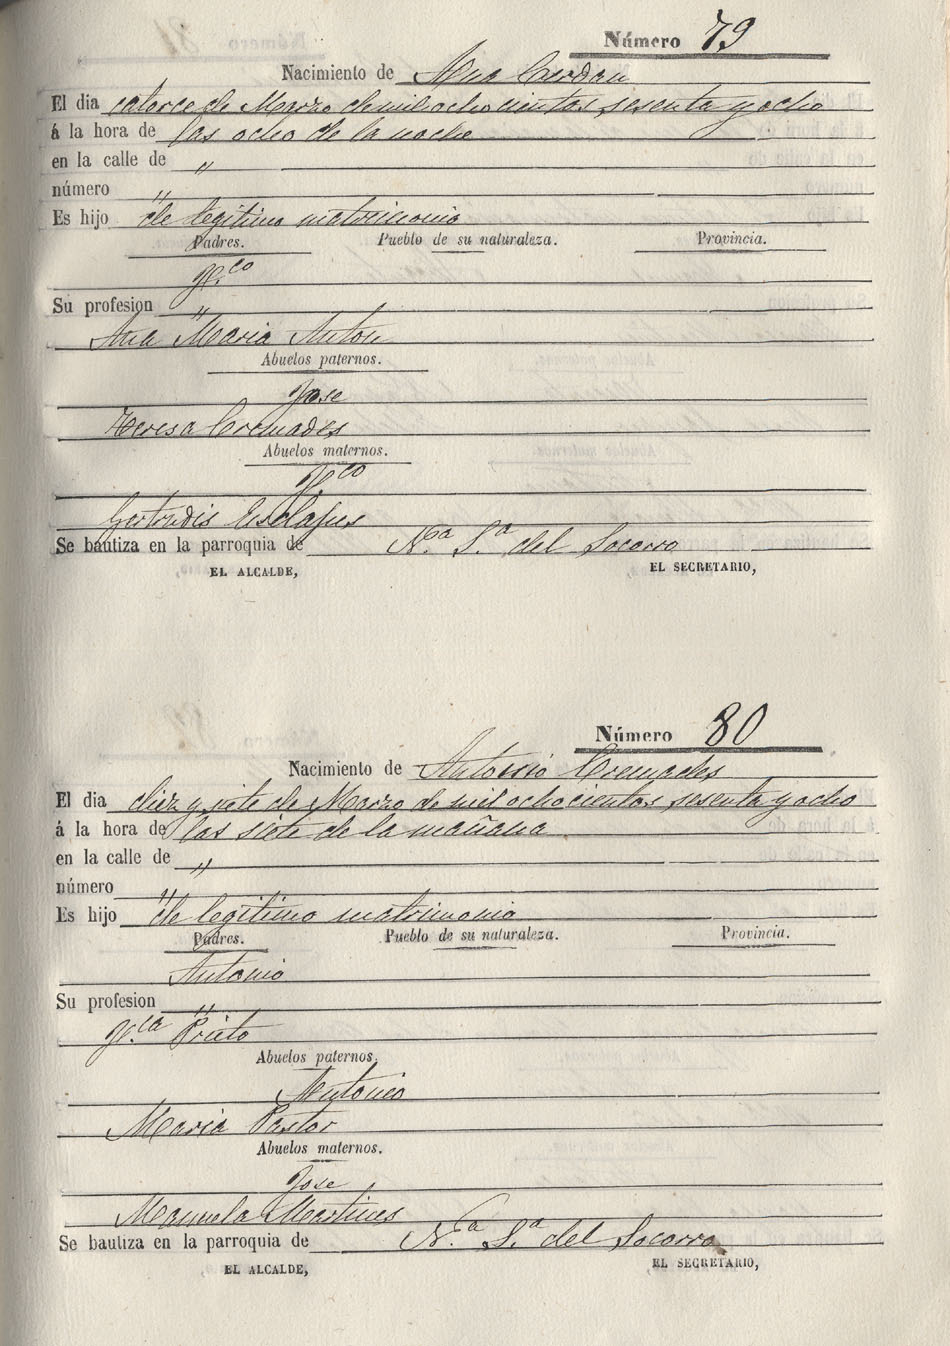 Número 79
Nacimiento de Ana Cerdan
El dia catorce de Marzo de mil ochocientos sesenta y ocho
á la hora de las ocho de la noche
en la calle de "
número "
Es hijo de legitimo matrimonio
Padres. Pueblo de su naturaleza. Provincia.
Fco
Su profesion "
Ana Maria Anton
Abuelos paternos.
Jose
Teresa Cremades
Abuelos maternos.
Fco
Gertrudis Esclapes
Se bautiza en la parroquia de Na. Sa. del Socorro
EL ALCALDE, EL SECRETARIO,
Número 80
Nacimiento de Antonio Cremades
El dia diez y siete de Marzo de mil ochocientos sesenta y ocho
á la hora de las siete de la mañana
en la calle de "
número "
Es hijo de legitimo matrimonio
Padres. Pueblo de su naturaleza. Provincia.
Antonio
Su profesion "
Fca Prieto
Abuelos paternos.
Antonio
Maria Pastor
Abuelos maternos.
Jose
Manuela Martines
Se bautiza en la parroquia de Na. Sa. del Socorro
EL ALCALDE, EL SECRETARIO,